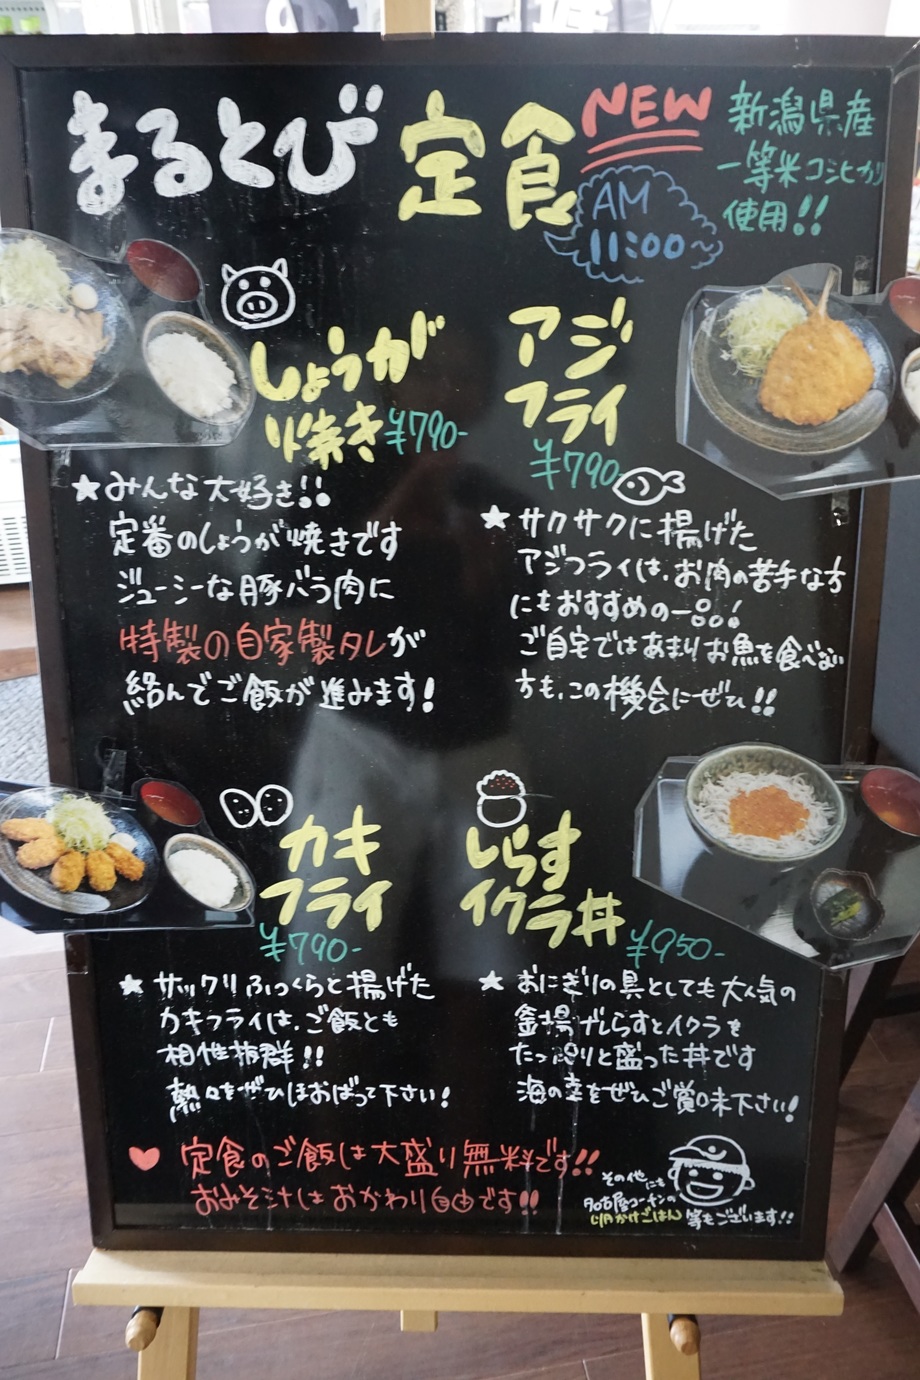 まるとび定食 NEW
AM
11:00〜
新潟県産
一等米コシヒカリ
使用!!
しょうが
焼き ¥790-
★みんな大好き!!
定番のしょうが焼きです
ジューシーな豚バラ肉に
特製の自家製タレが
絡んでご飯が進みます!
アジ
フライ
¥790-
★サクサクに揚げた
アジフライは、お肉の苦手な方
にもおすすめの一品!
ご自宅ではあまりお魚を食べない
方も、この機会にぜひ!!
カキ
フライ
¥790-
★サックリふっくらと揚げた
カキフライは、ご飯とも
相性抜群!!
熱々をぜひほおばって下さい!
しらす
イクラ丼 ¥950-
★おにぎりの具としても大人気の
釜揚げしらすとイクラを
たっぷりと盛った丼です
海の幸をぜひご賞味下さい!
♥定食のご飯は大盛り無料です!!
おみそ汁はおかわり自由です!!
その他にも
名古屋コーチンの
卵かけごはん等もございます!!